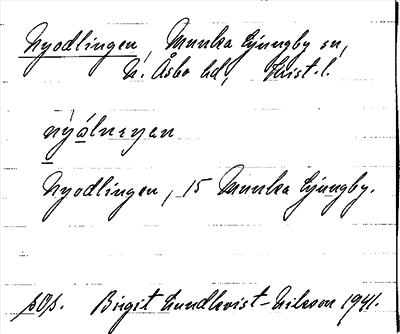 Nyodlingen, Munka Ljungby sn,
N. Åsbo hd, Krist. l.
Nyodlingen, 15 Munka Ljungby.
Birgit Lundkvist-Nilsson 1941.